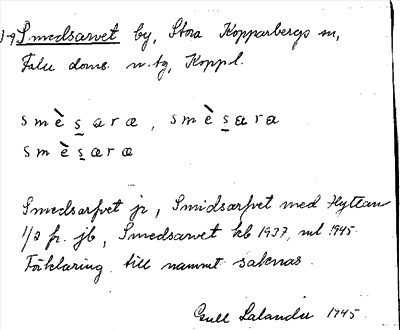 Smedsarvet by, Stora Kopparbergs sn,
Falu doms. n. tg, Koppl.
smèsara, smèsara
smèsæræ
Smedsarfvet jr, Smidsarfvet med Hyttan
1/2 fr. jb, Smedsarvet kb 1937, ml 1945.
Förklaring till namnet saknas.
Gull Salander 1945.